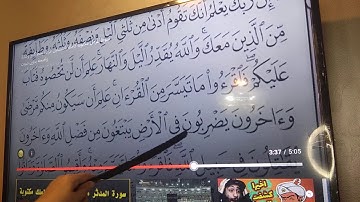 إِنَّ رَبَّكَ يَعْلَمُ أَنَّكَ تَقُومُ أَدْنَىٰ مِن ثُلُثَيِ ٱلَّيْلِ وَنِصْفَهُۥ وَثُلُثَهُۥ وَطَآئِفَةٌ
مِّنَ ٱلَّذِينَ مَعَكَ ۚ وَٱللَّهُ يُقَدِّرُ ٱلَّيْلَ وَٱلنَّهَارَ ۚ عَلِمَ أَن لَّن تُحْصُوهُ فَتَابَ
عَلَيْكُمْ ۖ فَٱقْرَءُوا۟ مَا تَيَسَّرَ مِنَ ٱلْقُرْءَانِ ۚ عَلِمَ أَن سَيَكُونُ مِنكُم مَّرْضَىٰ
وَءَاخَرُونَ يَضْرِبُونَ فِى ٱلْأَرْضِ يَبْتَغُونَ مِن فَضْلِ ٱللَّهِ ۙ وَءَاخَرُونَ
3:37 / 5:05
سورة المدثر
مكتوبة